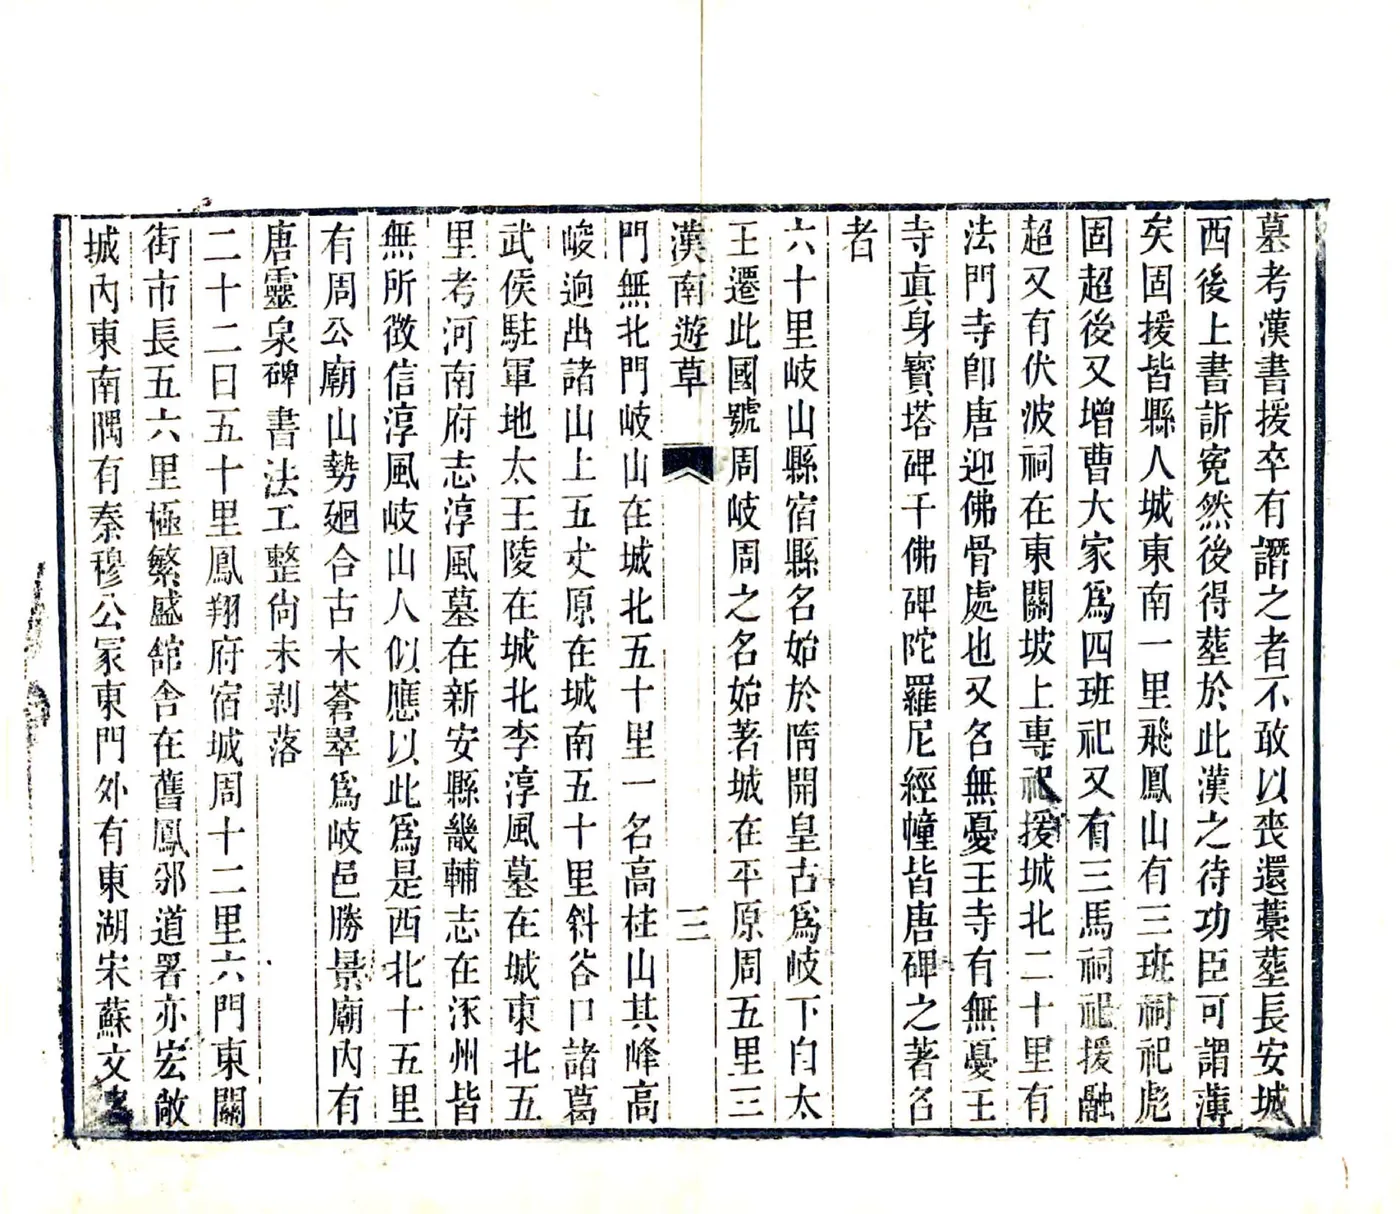 墓考漢書援卒有譖之者不敢以喪還藁塟長安城
西後上書訴寃然後得塟於此漢之待功臣可謂薄
矣固援皆縣人城東南一里飛鳳山有三班祠祀彪
固超後又增曹大家爲四班祀又有三馬祠祀援融
超又有伏波祠在東關坡上專祀援城北二十里有
法門寺卽唐迎佛骨處也又名無憂王寺有無憂王
寺眞身寶塔碑千佛碑陀羅尼經幢皆唐碑之著名
者
六十里岐山縣宿縣名始於隋開皇古爲岐下自太
王遷此國號周岐周之名始著城在平原周五里三
漢南遊草
三
門無北門岐山在城北五十里一名高柱山其峰高
峻逈出諸山上五丈原在城南五十里斜谷口諸葛
武侯駐軍地太王陵在城北李淳風墓在城東北五
里考河南府志淳風墓在新安縣畿輔志在涿州皆
無所徵信淳風岐山人似應以此爲是西北十五里
有周公廟山勢廻合古木蒼翠爲岐邑勝景廟內有
唐靈泉碑書法工整尙未剥落
二十二日五十里鳳翔府宿城周十二里六門東關
街市長五六里極繁盛舘舍在舊鳳邠道署亦宏敞
城內東南隅有秦穆公冢東門外有東湖宋蘇文忠